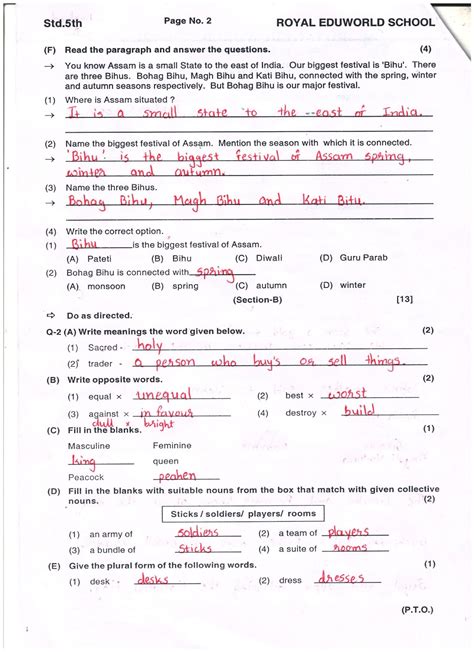 Std.5th Page No. 2 ROYAL EDUWORLD SCHOOL
(F) Read the paragraph and answer the questions. (4)
→ You know Assam is a small State to the east of India. Our biggest festival is 'Bihu'. There
are three Bihus. Bohag Bihu, Magh Bihu and Kati Bihu, connected with the spring, winter
and autumn seasons respectively. But Bohag Bihu is our major festival.
(1) Where is Assam situated ?
→ It is a small state to the east of India.
(2) Name the biggest festival of Assam. Mention the season with which it is connected.
→ 'Bihu' is the biggest festival of Assam spring,
winter and autumn.
(3) Name the three Bihus.
→ Bohag Bihu, Magh Bihu and Kati Bitu.
(4) Write the correct option.
(1) Bihu is the biggest festival of Assam.
(A) Pateti (B) Bihu (C) Diwali (D) Guru Parab
(2) Bohag Bihu is connected with spring
(A) monsoon (B) spring (C) autumn (D) winter
(Section-B) [13]
⇨ Do as directed.
Q-2 (A) Write meanings the word given below. (2)
(1) Sacred - holy
(2) trader - a person who buy's or sell things.
(B) Write opposite words. (2)
(1) equal × unequal (2) best × worst
(3) against × in favour (4) destroy × build
dull × bright
(C) Fill in the blanks. (1)
Masculine Feminine
king queen
Peacock peahen
(D) Fill in the blanks with suitable nouns from the box that match with given collective
nouns. (2)
Sticks / soldiers/ players/ rooms
(1) an army of soldiers (2) a team of players
(3) a bundle of sticks (4) a suite of rooms
(E) Give the plural form of the following words. (1)
(1) desk - desks (2) dress dresses
(P.T.O.)